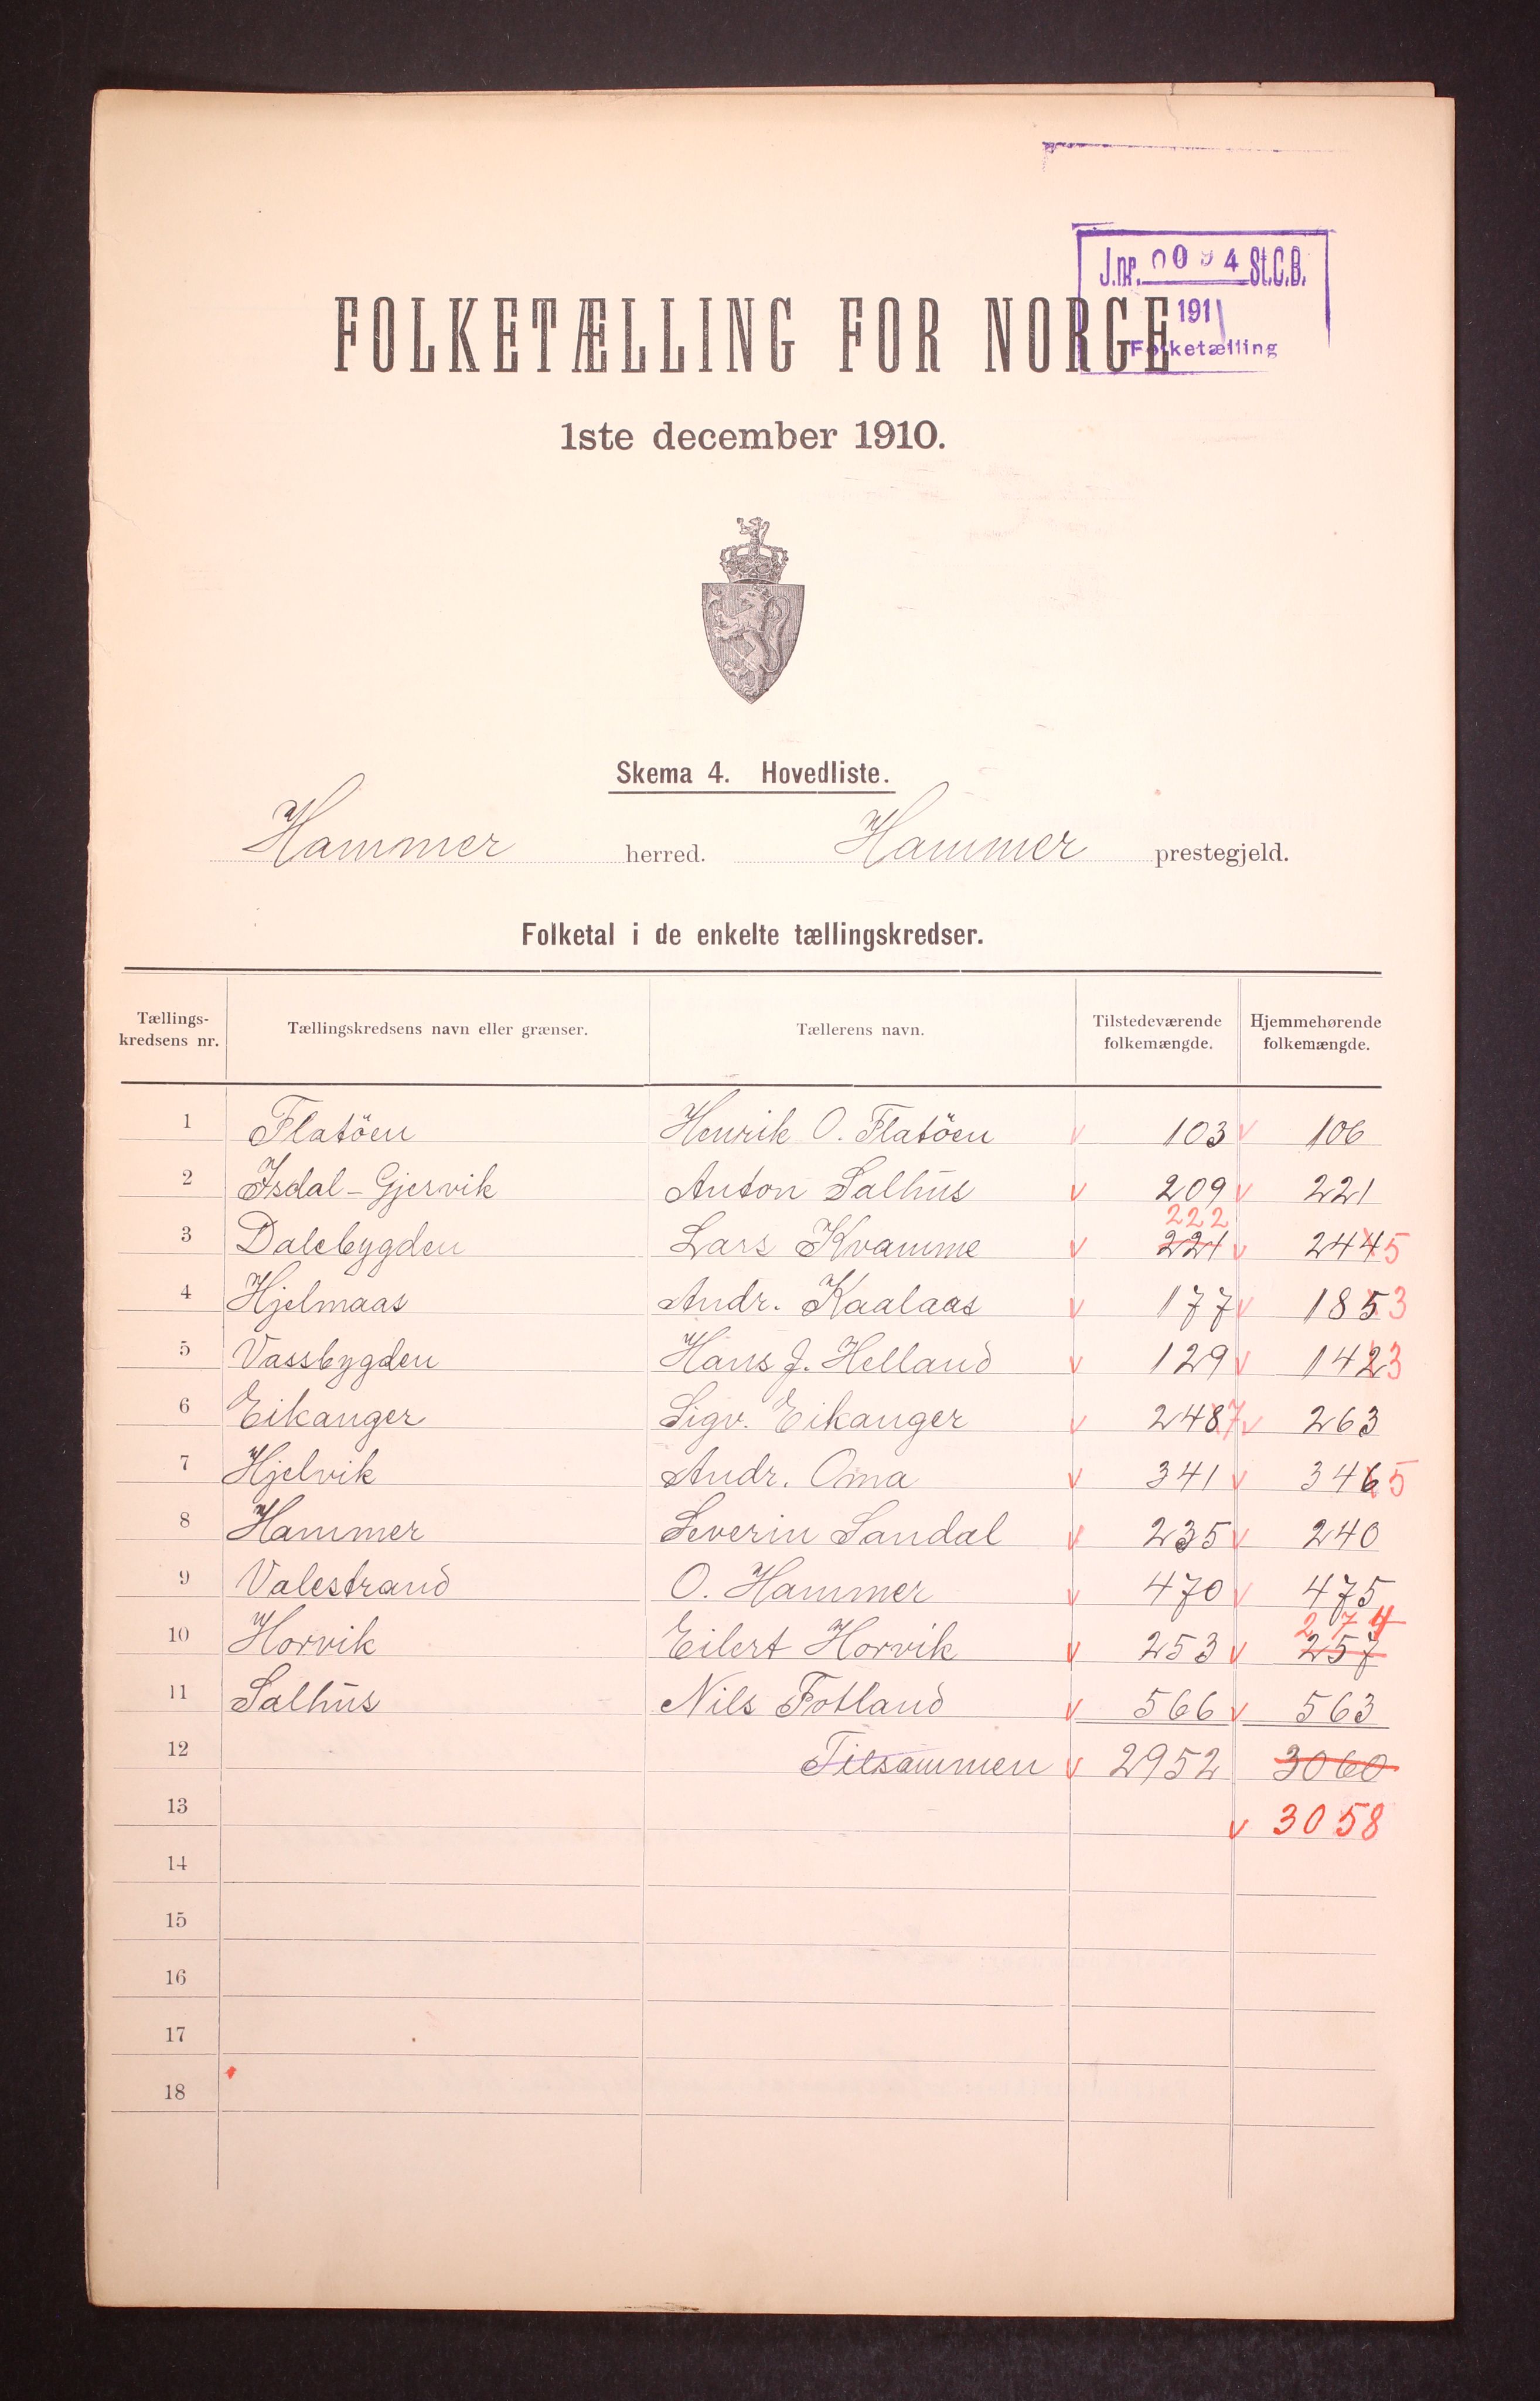 J.nr. 0094 St.C.B.
1911
Folketælling
FOLKETÆLLING FOR NORGE
1ste december 1910.
Skema 4. Hovedliste.
Hammer herred. Hammer prestegjeld.
Folketal i de enkelte tællingskredser.
Tællings-kredsens nr. Tællingskredsens navn eller grænser. Tællerens navn. Tilstedeværende folkemængde. Hjemmehørende folkemængde.
1 Flatöen Henrik O. Flatöen v 103 v 106
2 Isdal-Gjervik Anton Salhus v 209 v 221
222
3 Dalebygden Lars Kvamme v 221 v 244 5
4 Hjelmaas Andr. Kaalaas v 177 v 185 3
5 Vassbygden Hans J. Helland v 129 v 142 3
6 Eikanger Sigv. Eikanger v 248 7 v 263
7 Hjelvik Andr. Oma v 341 v 346 5
8 Hammer Severin Sandal v 235 v 240
9 Valestrand O. Hammer v 470 v 475
274
10 Horvik Eilert Horvik v 253 v 257
11 Salhus Nils Fotland v 566 v 563
12 Tilsammen v 2952 3060
13 v 3058
14
15
16
17
18